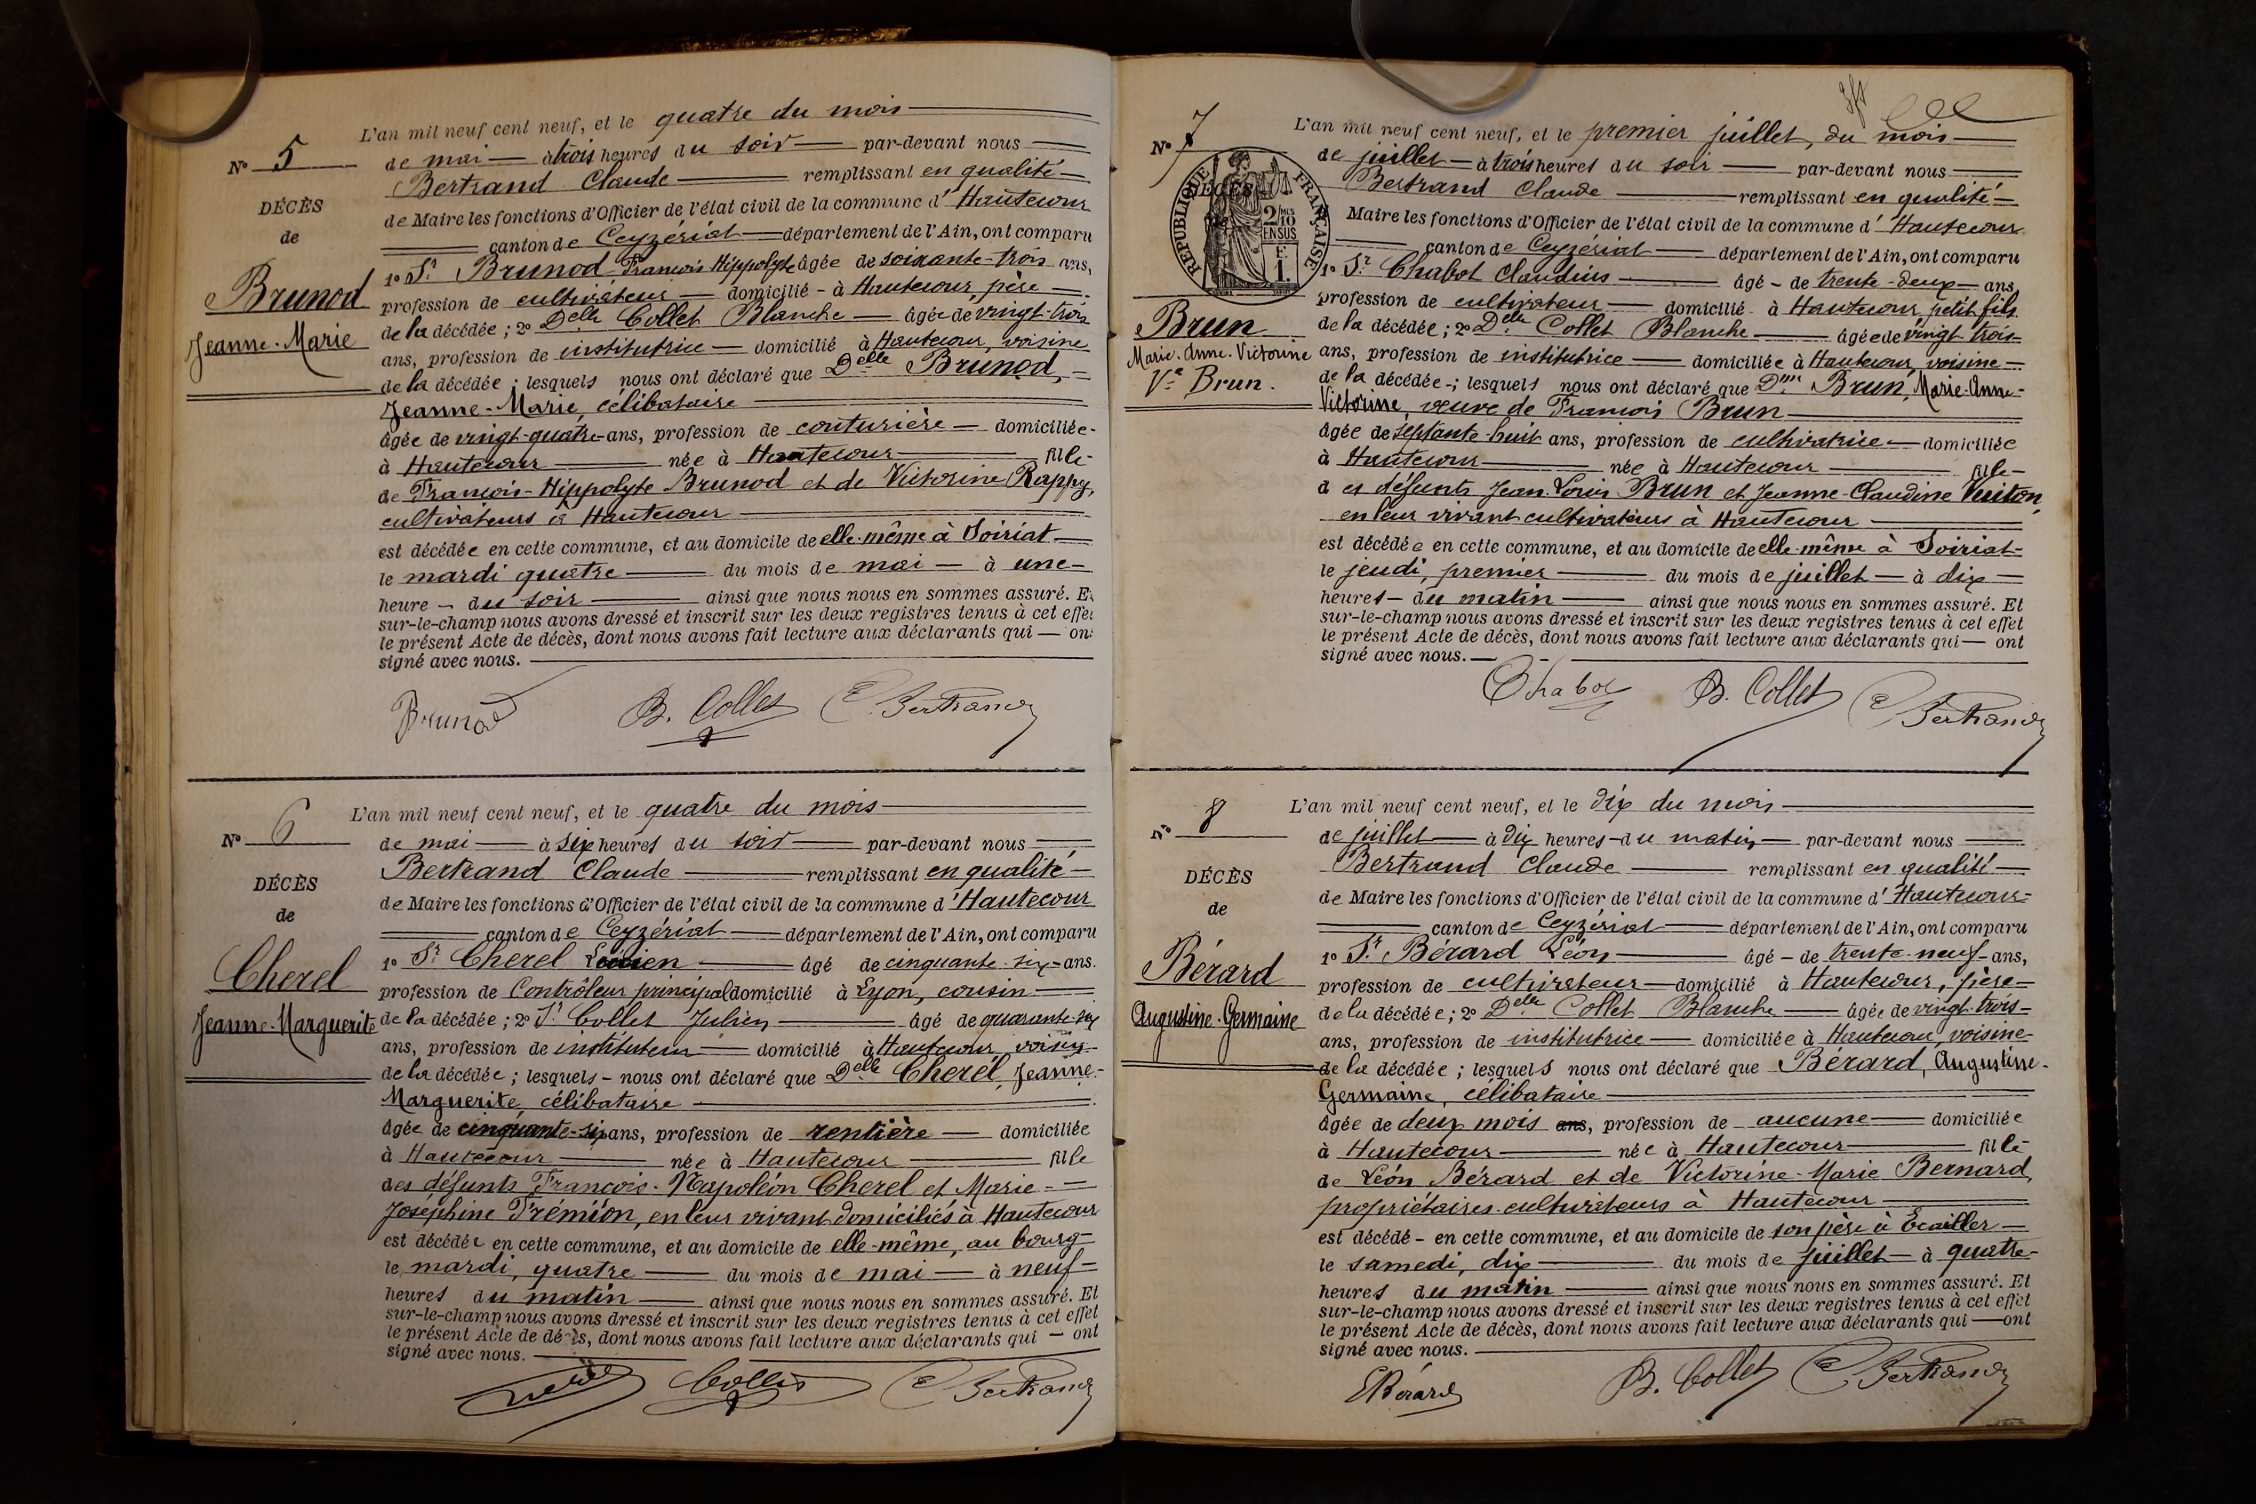 L'an mil neuf cent neuf, et le quatre du mois
N° 5
de mai à trois heures du soir par-devant nous
Bertrand Claude remplissant en qualité
DÉCÈS
de Maire les fonctions d'Officier de l'état civil de la commune d'Hautecour
de
canton de Ceyzériat département de l'Ain, ont comparu
1° Sr Brunod François Hippolyte âgée de soixante-trois ans,
Brunod
profession de cultivateur domicilié à Hautecour, père
Jeanne-Marie
de la décédée ; 2° Delle Collet Blanche âgée de vingt-trois
ans, profession de institutrice domicilié à Hautecour, voisine
de la décédée ; lesquels nous ont déclaré que Delle Brunod,
Jeanne-Marie, célibataire
âgée de vingt-quatre ans, profession de couturière domiciliée
à Hautecour née à Hautecour fille
de François-Hippolyte Brunod et de Victorine Rappy,
cultivateurs à Hautecour
est décédée en cette commune, et au domicile de elle-même à Soiriat
le mardi quatre du mois de mai à une
heure du soir ainsi que nous nous en sommes assuré. Et
sur-le-champ nous avons dressé et inscrit sur les deux registres tenus à cet effet
le présent Acte de décès, dont nous avons fait lecture aux déclarants qui ont
signé avec nous.
Brunod B. Collet C. Bertrand
L'an mil neuf cent neuf, et le quatre du mois
N° 6
de mai à six heures du soir par-devant nous
Bertrand Claude remplissant en qualité
DÉCÈS
de Maire les fonctions d'Officier de l'état civil de la commune d'Hautecour
de
canton de Ceyzériat département de l'Ain, ont comparu
1° Sr Cherel Lucien âgé de cinquante-six ans.
Cherel
profession de Contrôleur principal domicilié à Lyon, cousin
Jeanne-Marguerite
de la décédée ; 2° Sr Collet Julien âgé de quarante-six
ans, profession de instituteur domicilié à Hautecour voisin
de la décédée ; lesquels nous ont déclaré que Delle Cherel, Jeanne-
Marguerite, célibataire
âgée de cinquante-six ans, profession de rentière domiciliée
à Hautecour née à Hautecour fille
des défunts François-Napoléon Cherel et Marie-
Joséphine Frémion, en leur vivant domiciliés à Hautecour
est décédée en cette commune, et au domicile de elle-même, au bourg
le mardi, quatre du mois de mai à neuf
heures du matin ainsi que nous nous en sommes assuré. Et
sur-le-champ nous avons dressé et inscrit sur les deux registres tenus à cet effet
le présent Acte de décès, dont nous avons fait lecture aux déclarants qui ont
signé avec nous.
Collet C. Bertrand
L'an mil neuf cent neuf, et le premier juillet, du mois
N° 7
de juillet à trois heures du soir par-devant nous
Bertrand Claude remplissant en qualité
DÉCÈS
RÉPUBLIQUE FRANÇAISE
2/10 EN SUS
1 F.
Maire les fonctions d'Officier de l'état civil de la commune d'Hautecour
canton de Ceyzériat département de l'Ain, ont comparu
1° Sr Chabot Claudius âgé de trente-deux ans,
profession de cultivateur domicilié à Hautecour, petit fils
Brun
de la décédée ; 2° Delle Collet Blanche âgée de vingt trois
Marie-Anne-Victorine
ans, profession de institutrice domiciliée à Hautecour, voisine
Ve Brun.
de la décédée ; lesquels nous ont déclaré que Dme Brun, Marie-Anne-
Victorine, veuve de François Brun
âgée de septante-huit ans, profession de cultivatrice domiciliée
à Hautecour née à Hautecour fille
des défunts Jean-Louis Brun et Jeanne-Claudine Vuiton,
en leur vivant cultivateurs à Hautecour
est décédée en cette commune, et au domicile de elle-même à Soiriat
le jeudi, premier du mois de juillet à dix
heures du matin ainsi que nous nous en sommes assuré. Et
sur-le-champ nous avons dressé et inscrit sur les deux registres tenus à cet effet
le présent Acte de décès, dont nous avons fait lecture aux déclarants qui ont
signé avec nous.
Chabot B. Collet C. Bertrand
L'an mil neuf cent neuf, et le dix du mois
N° 8
de juillet à dix heures du matin par-devant nous
Bertrand Claude remplissant en qualité
DÉCÈS
de Maire les fonctions d'Officier de l'état civil de la commune d'Hautecour
de
canton de Ceyzériat département de l'Ain, ont comparu
1° Sr Bérard Léon âgé de trente-neuf ans,
Bérard
profession de cultivateur domicilié à Hautecour, père
Augustine-Germaine
de la décédée ; 2° Delle Collet Blanche âgée de vingt-trois
ans, profession de institutrice domiciliée à Hautecour, voisine
de la décédée ; lesquels nous ont déclaré que Bérard, Augustine-
Germaine, célibataire
âgée de deux mois ans, profession de aucune domiciliée
à Hautecour née à Hautecour fille
de Léon Bérard et de Victorine-Marie Bernard,
propriétaires-cultivateurs à Hautecour
est décédé en cette commune, et au domicile de son père à Ecailler
le samedi, dix du mois de juillet à quatre
heures du matin ainsi que nous nous en sommes assuré. Et
sur-le-champ nous avons dressé et inscrit sur les deux registres tenus à cet effet
le présent Acte de décès, dont nous avons fait lecture aux déclarants qui ont
signé avec nous.
Bérard B. Collet C. Bertrand